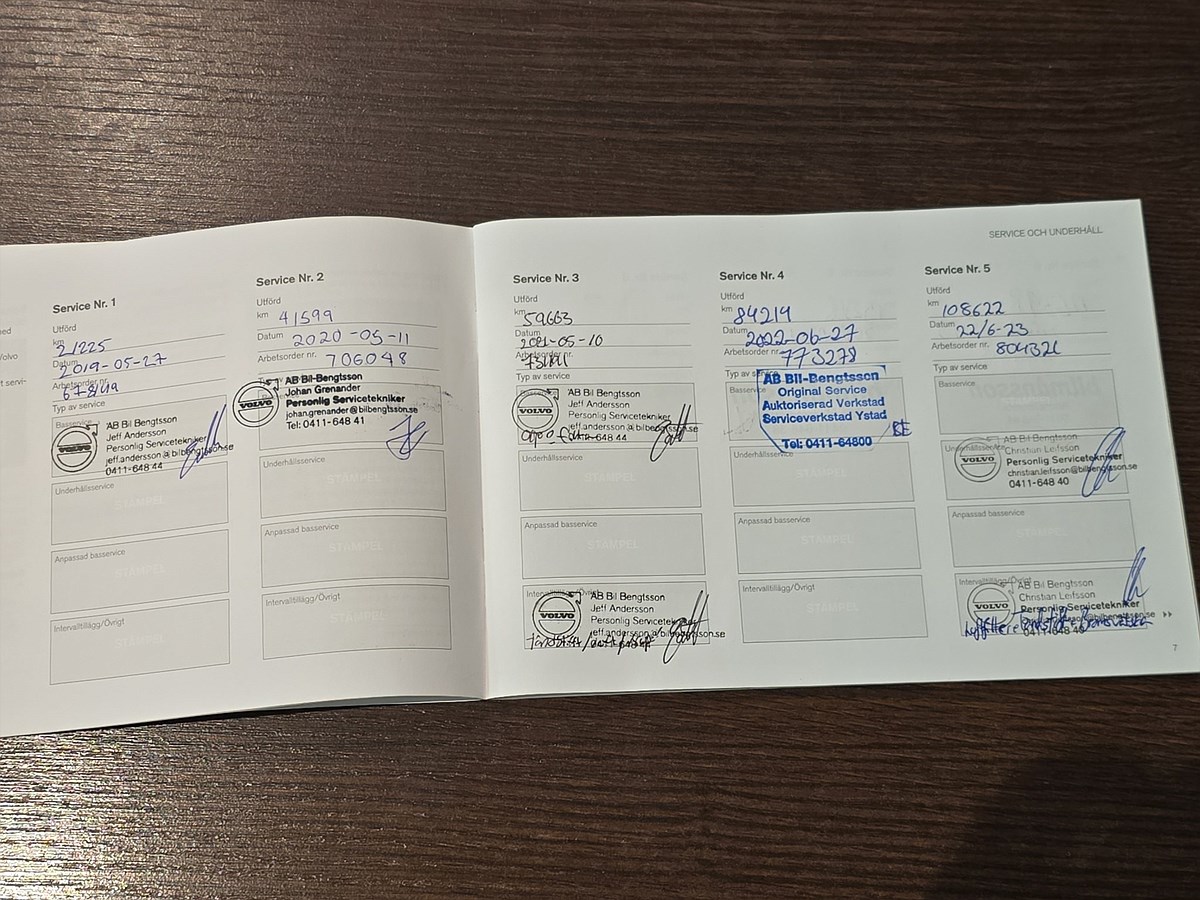 SERVICE OCH UNDERHÅLL
Service Nr. 1
Utförd
km 21225
Datum 2019-05-27
Arbetsorder nr.
Typ av service
Basservice
VOLVO
AB Bil Bengtsson
Jeff Andersson
Personlig Servicetekniker
jeff.andersson@bilbengtsson.se
0411-648 44
Underhållsservice
STÄMPEL
Anpassad basservice
STÄMPEL
Intervalltillägg/Övrigt
STÄMPEL
Service Nr. 2
Utförd
km 41599
Datum 2020-05-11
Arbetsorder nr. 706048
VOLVO
AB Bil-Bengtsson
Johan Grenander
Personlig Servicetekniker
johan.grenander@bilbengtsson.se
Tel: 0411-648 41
Underhållsservice
STÄMPEL
Anpassad basservice
STÄMPEL
Intervalltillägg/Övrigt
STÄMPEL
Service Nr. 3
Utförd
km 59663
Datum 2021-05-10
Arbetsorder nr.
Typ av service
VOLVO
AB Bil Bengtsson
Jeff Andersson
Personlig Servicetekniker
jeff.andersson@bilbengtsson.se
0411-648 44
Underhållsservice
STÄMPEL
Anpassad basservice
STÄMPEL
Intervalltillägg/Övrigt
VOLVO
AB Bil Bengtsson
Jeff Andersson
Personlig Servicetekniker
jeff.andersson@bilbengtsson.se
Service Nr. 4
Utförd
km 84214
Datum 2022-06-27
Arbetsorder nr. 773278
Typ av service
Basservice
AB Bil-Bengtsson
Original Service
Auktoriserad Verkstad
Serviceverkstad Ystad
Tel: 0411-64800
Underhållsservice
STÄMPEL
Anpassad basservice
STÄMPEL
Intervalltillägg/Övrigt
STÄMPEL
Service Nr. 5
Utförd
km 108622
Datum 22/6-23
Arbetsorder nr. 804321
Typ av service
Basservice
Underhållsservice
VOLVO
AB Bil Bengtsson
Christian Leifsson
Personlig Servicetekniker
christian.leifsson@bilbengtsson.se
0411-648 40
Anpassad basservice
STÄMPEL
Intervalltillägg/Övrigt
VOLVO
AB Bil Bengtsson
Christian Leifsson
Personlig Servicetekniker
0411-648 40
7